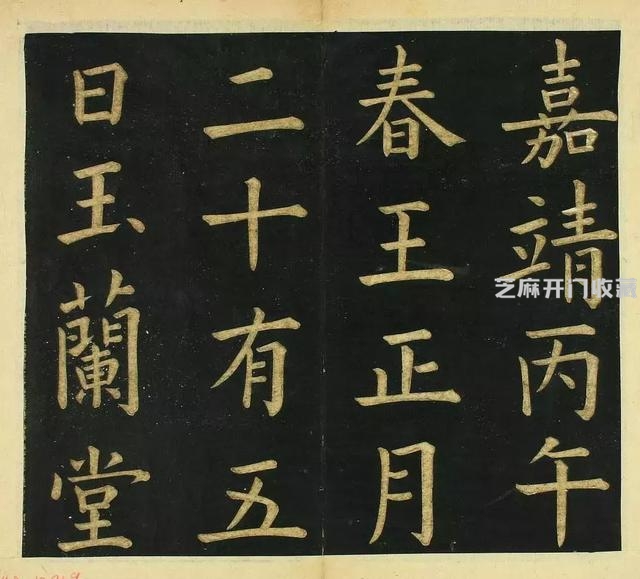 嘉靖丙午
春王正月
二十有五
日玉蘭堂
芝麻开门收藏